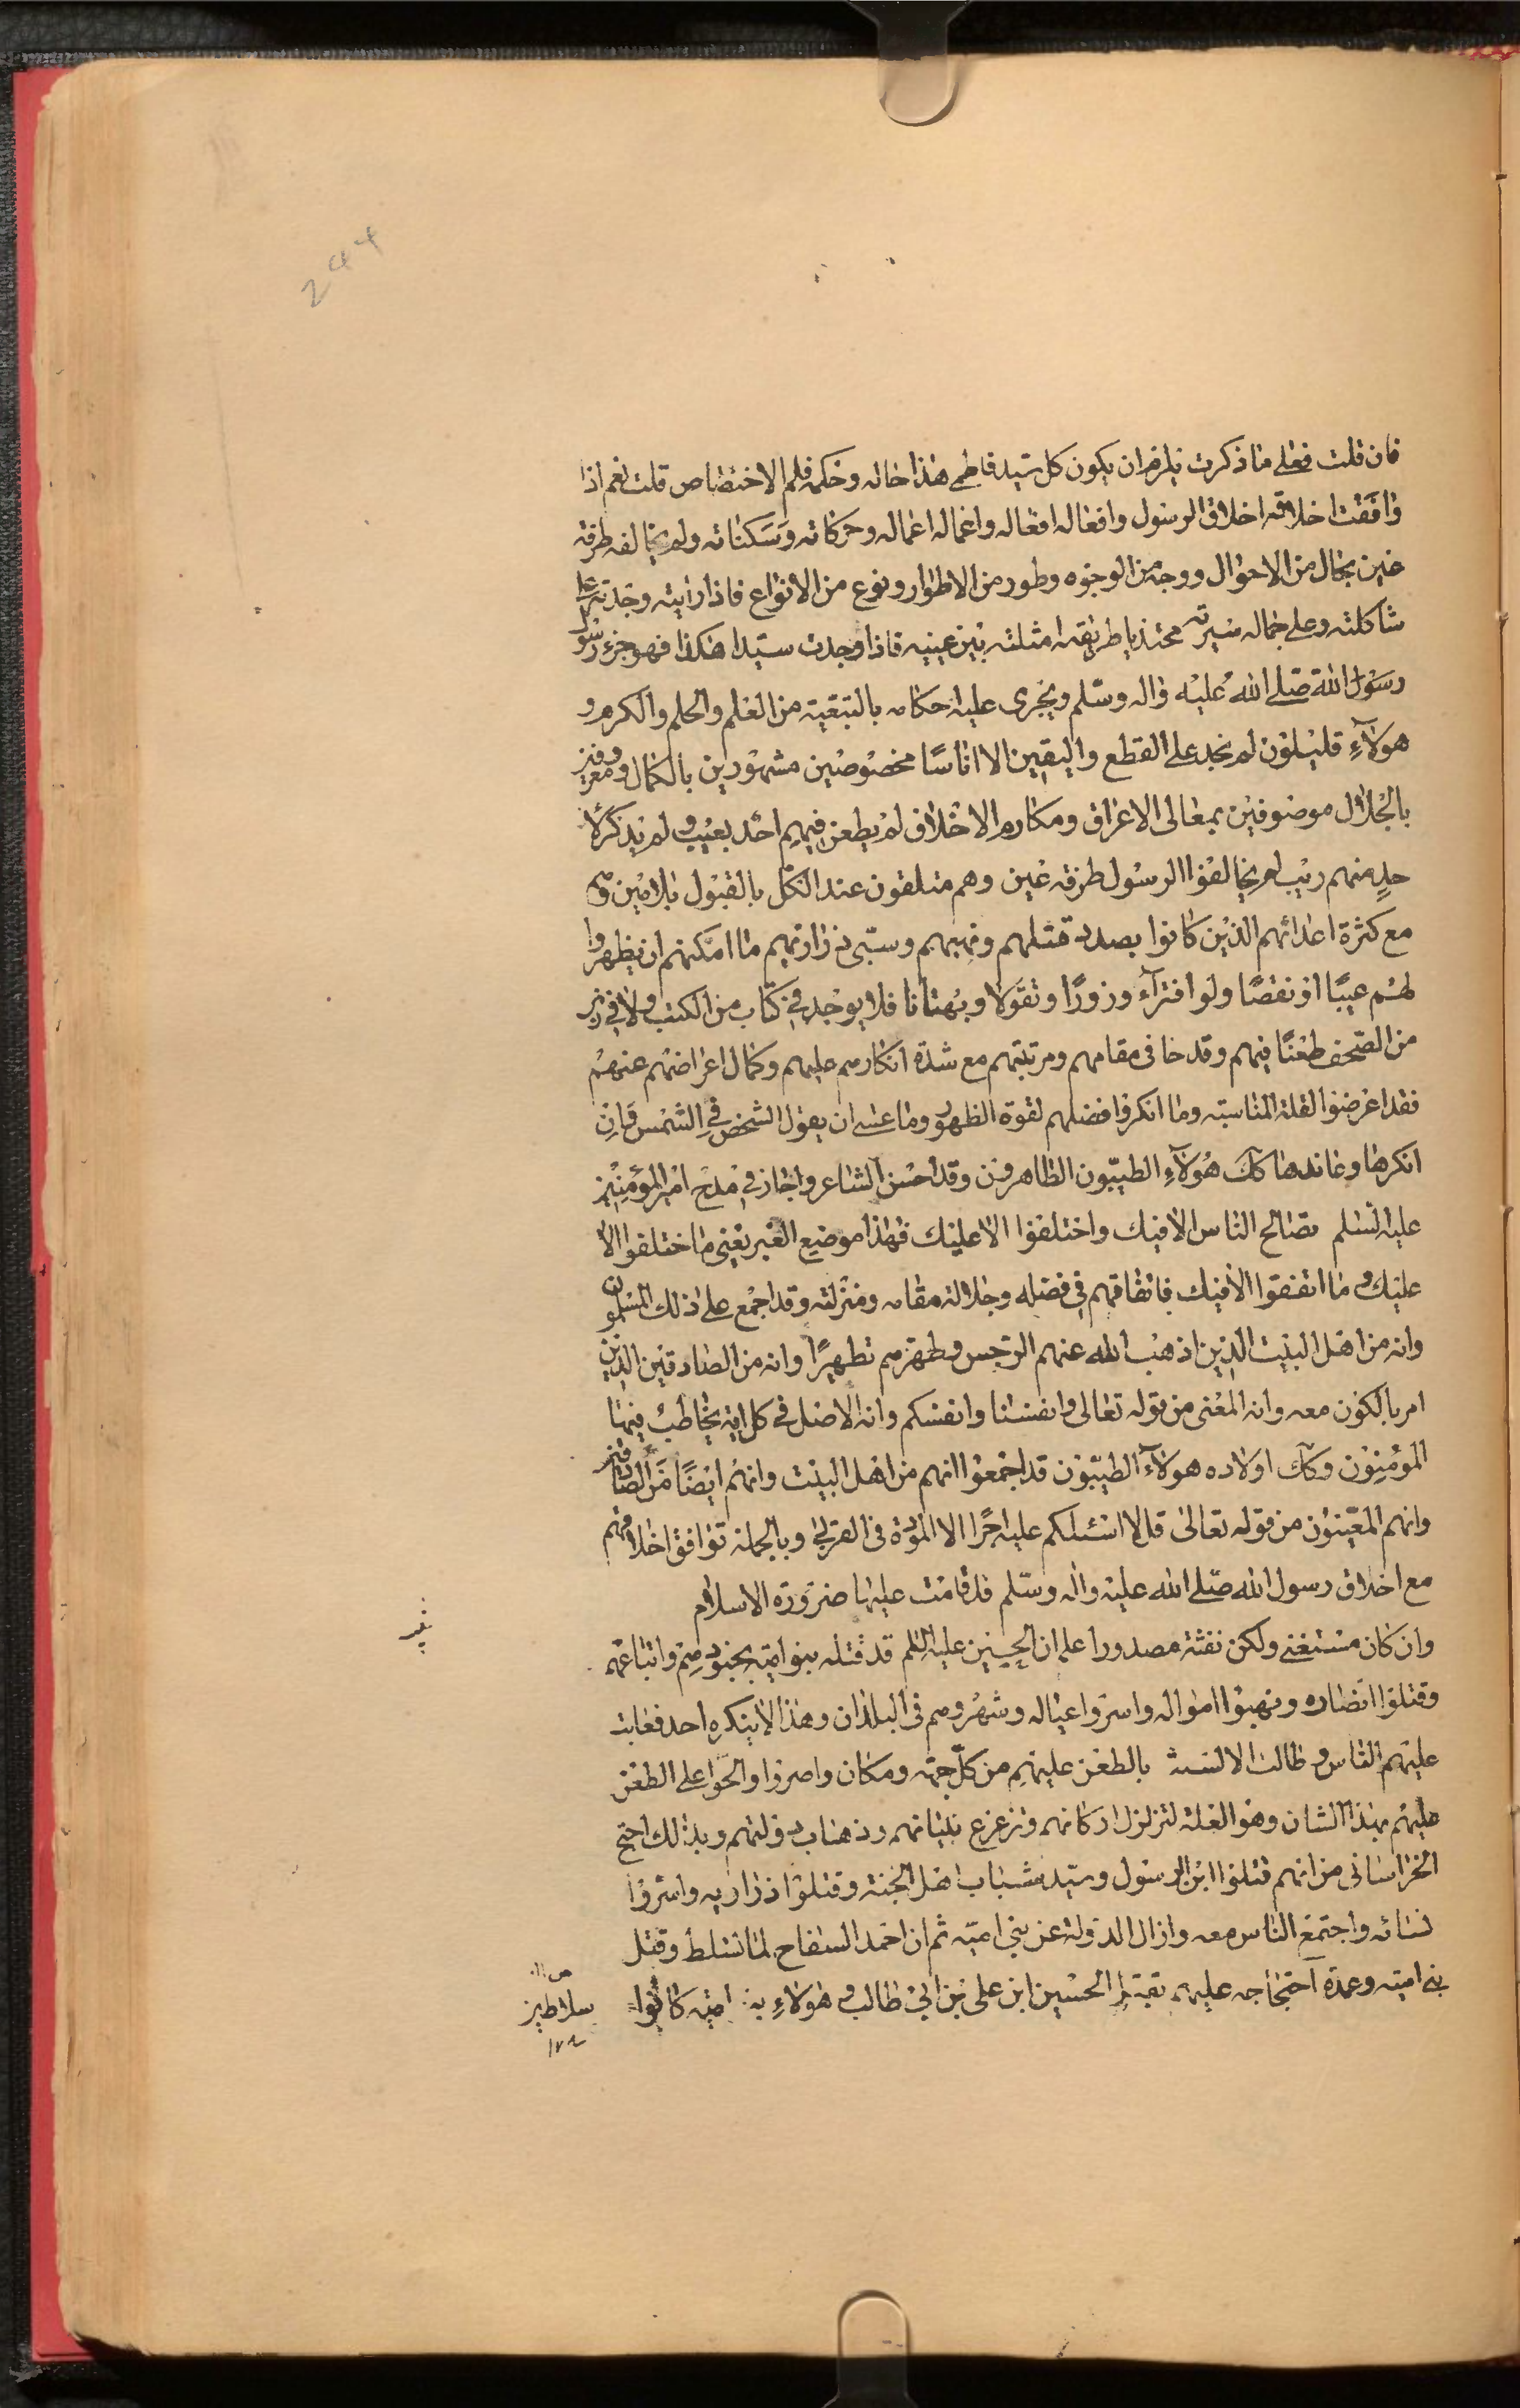 244
فان قلت فعلى ما ذكرت يلزم ان يكون كل سيد فاطمي هذا حاله وحكمه فلم الاختصاص قلت نعم اذا
وافقت اخلاقه اخلاق الرسول وافعاله افعاله واعماله اعماله وحركاته وسكناته ولم يخالفه طرفة
عين بحال من الاحوال ووجه من الوجوه وطور من الاطوار ونوع من الانواع فاذا رايته وجدته على
شاكلته وعلى جماله سيرته محتذيا طريقه امثلته بين عينيه فاذا وجدت سيدا هكذا فهو جزء رسول
رسول الله صلى الله عليه واله وسلم ويجرى عليه احكامه بالتبعية من العلم والحلم والكرم و
هولآء قليلون لم نجد على القطع واليقين الا اناسًا مخصوصين مشهورين بالكمال ومعروفين
بالجلال موصوفين بمعالى الاعراق ومكارم الاخلاق لم يطعن فيهم احد بعيب ولم يذكر لا
حدٍ منهم ريب لم يخالفوا الرسول طرفه عين وهم متلقون عند الكل بالقبول بلا مين وهم
مع كثرة اعدائهم الذين كانوا بصدد قتلهم ونهبهم وسبى ذراريهم ما امكنهم ان يظهروا
لهم عيبًا او نقصًا ولو افترآء وزورًا وتقولا وبهتانا فلا يوجد في كتاب من الكتب ولا في زبر
من الصحف طعنًا فيهم وقدحا في مقامهم ومرتبتهم مع شدة انكارهم عليهم وكمال اعراضهم عنهم
فقد اعرضوا لقلة المناسبة وما انكروا فضلهم لقوة الظهور وما عسى ان يقول الشخص في الشمس فان
انكرها وعاندها كك هولآء الطيبون الطاهرون وقد احسن الشاعر واجاز في مدح امير المؤمنين
عليه السلم تصالح الناس الا فيك واختلفوا الا عليك فهذا موضع الغير يعنى ما اختلفوا الا
عليك وما اتفقوا الا فيك فاتفاقهم في فضله وجلالة مقامه ومنزلته وقد اجمع على ذلك المسلمون
وانه من اهل البيت الذين اذهب الله عنهم الرجس وطهرهم تطهيرًا وانه من الصادقين الذين
امر بالكون معه وانه المعنى من قوله تعالى وانفسنا وانفسكم وانه الاصل في كل اية يخاطب فيها
المؤمنون وكك اولاده هولآء الطيبون قد اجمعوا انهم من اهل البيت وانهم ايضًا من الصادقين
وانهم المعينون من قوله تعالى قل لا اسئلكم عليه اجرًا الا المودة في القربى وبالجملة توافق اخلاقهم
مع اخلاق رسول الله صلى الله عليه واله وسلم قد قامت عليها ضرورة الاسلام
وان كان مستغنى ولكن نفثة مصدور اعلم ان الحسين عليه السلم قد قتله بنو امية بجنودهم واتباعهم
وقتلوا انصاره ونهبوا امواله واسروا عياله وشهروهم في البلدان وهذا لا ينكره احد فعابت
عليهم الناس وطالت الالسنة بالطعن عليهم من كل جهة ومكان واصروا والحوا على الطعن
عليهم بهذا الشان وهو العلة لتزلزل اركانهم وتزعزع بنيانهم وذهاب دولتهم وبذلك احتج
الخراسانى من انهم قتلوا ابن الرسول وسيد شباب اهل الجنة وقتلوا ذراريه واسروا
نسائه واجتمع الناس معه وازال الدولة عن بني امية ثم ان احمد السفاح لما تسلط وقتل
بني امية وعمدة احتجاجه عليهم بقتل الحسين ابن على بن ابي طالب وهولاء بنى امية كانوا
سلاطين